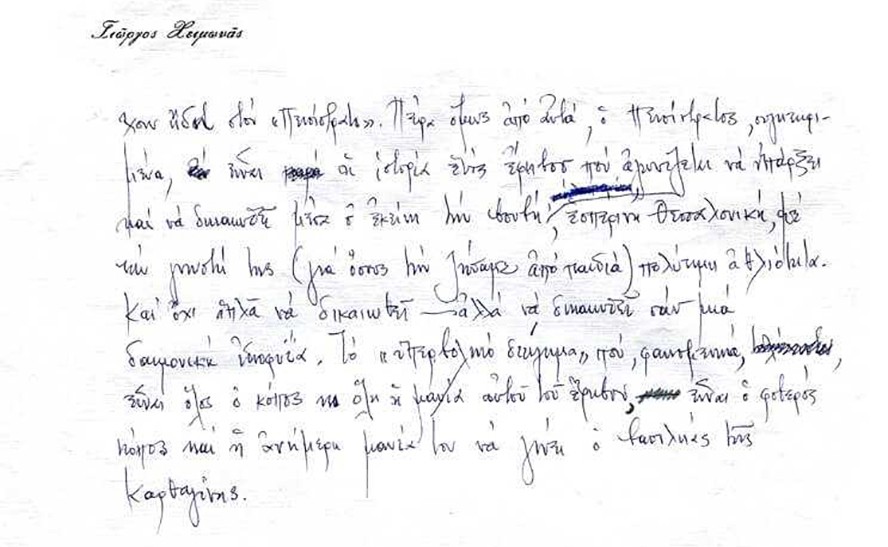 Γιῶργος Χειμωνᾶς
χουν ἤδη στόν «Πεισίστρατο». Πέρα ὅμως ἀπό αὐτά, ὁ Πεισίστρατος, συγκεκρι-
μένα, εἶναι ἡ ἱστορία ἑνός ἔφηβου πού ἀγωνίζεται νά ὑπάρξει
καί νά δικαιωθεῖ μέσα σ' ἐκείνη τήν ἑσπερινή Θεσσαλονίκη, μέ
τήν γνωστή της (γιά ὅσους τήν ζήσαμε ἀπό παιδιά) πολύτιμη ἀθλιότητα.
Καί ὄχι ἁπλᾶ νά δικαιωθεῖ — ἀλλά νά δικαιωθεῖ σάν μιά
δαιμονική ἰδιοφυΐα. Τό «ὑπερβολικό διήγημα» πού, φαινομενικά,
εἶναι ὅλος ὁ κόπος κι ὅλη ἡ μανία αὐτοῦ τοῦ ἔφηβου, εἶναι ὁ φοβερός
κόπος καί ἡ ἀνήμερη μανία του νά γίνει ὁ βασιληάς τῆς
Καρθαγένης.